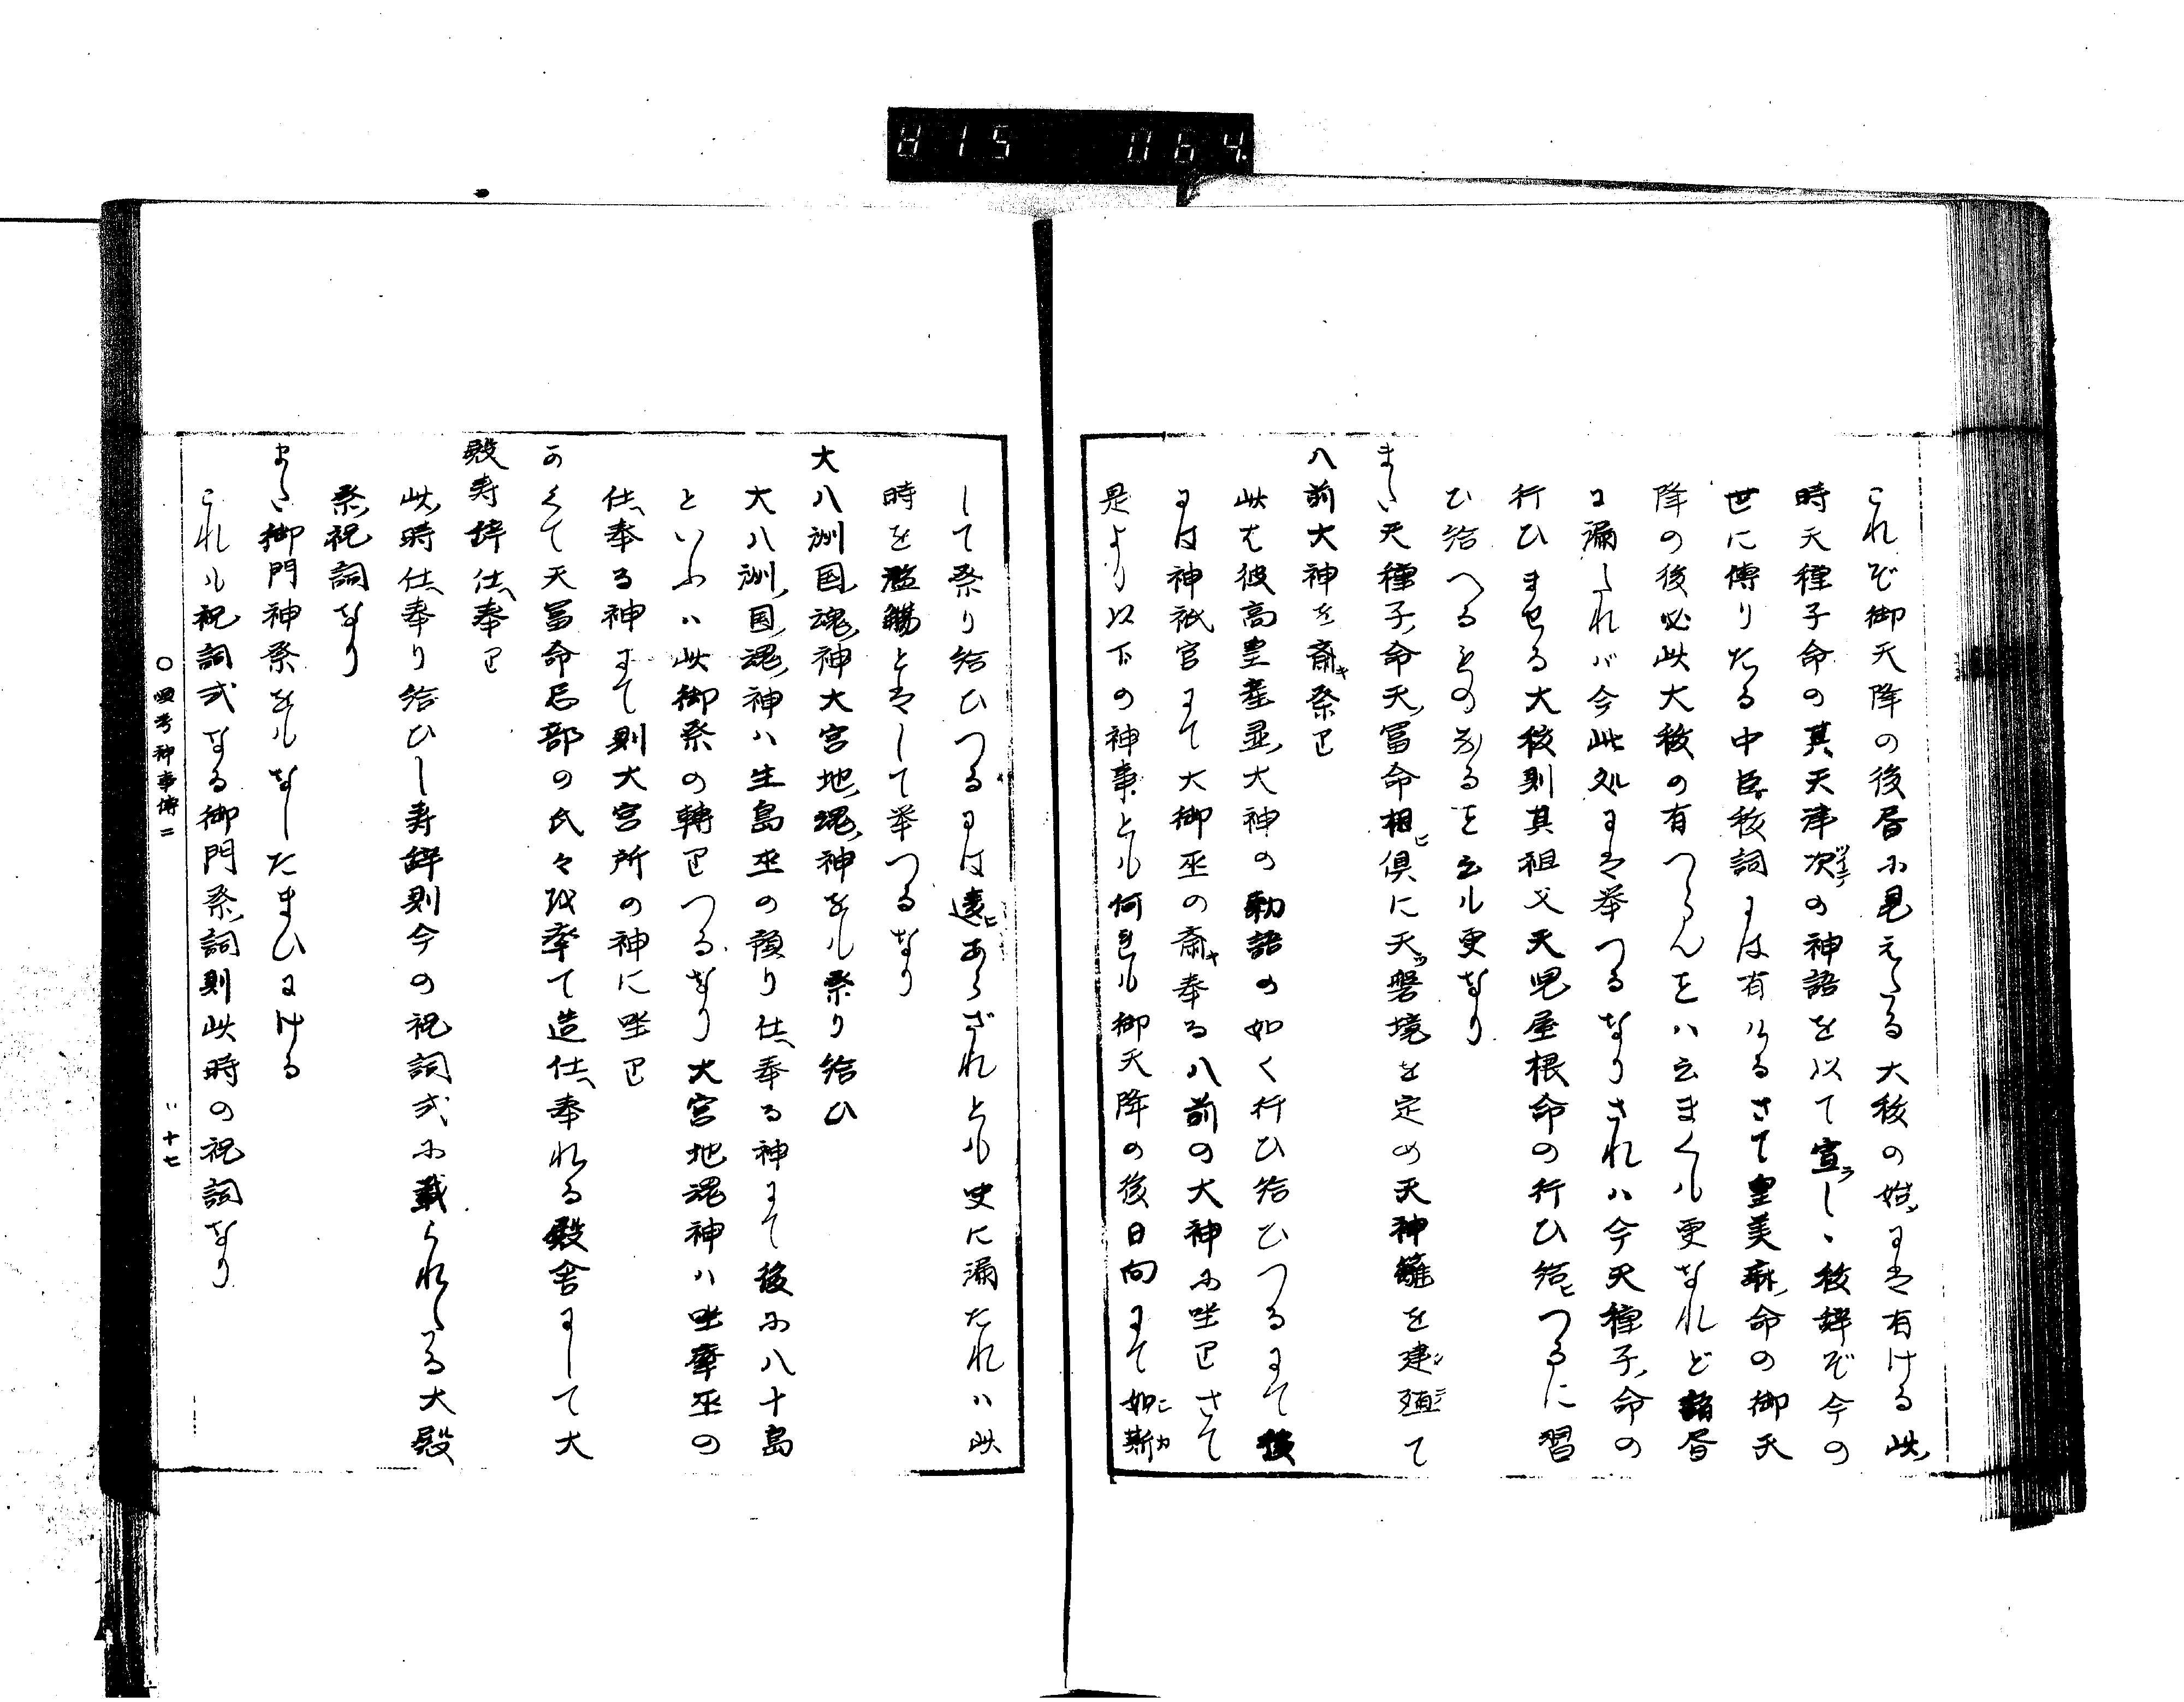 815 064
これぞ御天降の後昏に見えたる大祓の始にて有ける此
時天種子命の其天津次の神語を以て宣らしゝ祓辞ぞ今の
世に傳りたる中臣祓詞には有ける さて皇美麻命の御天
降の後必此大祓の有つらんとハ云まくも更なれど諸昏
に漏たれバ今此処には挙つるなり されハ今天種子命の
行ひませる大祓則其祖父天児屋根命の行ひ給ひつるに習
ひ給へるものなるを云ルも更なり
また天種子命天冨命相ヒ倶に天ツ磐境を定め天神籬を建殖て
八前大神を斎キ祭已
此を彼高皇産霊大神の勅語の如く行ひ給ひつるにて後
には神祇官にて大御巫の斎キ奉る八前の大神に坐已さて
是より以下の神事とも何をも御天降の後日向にて如斯
して祭り給ひつるには違ヒあらざれとも史に漏たれハ此
時を濫觴とはして挙つるなり
大八洲国魂神大宮地魂神をも祭り給ひ
大八洲国魂神ハ生島巫の預り仕奉る神にて後に八十島
といふハ此御祭の轉已つるなり大宮地魂神ハ坐摩巫の
仕奉る神にて則大宮所の神に坐已
かくて天冨命忌部の氏々を率て造仕奉れる殿舎にして大
殿寿辞仕奉已
此時仕奉り給ひし寿辞則今の祝詞式に載られたる大殿
祭祝詞なり
また御門神祭をもなしたまひにける
これも祝詞式なる御門祭詞則此時の祝詞なり
〇四考神事傳二 十七